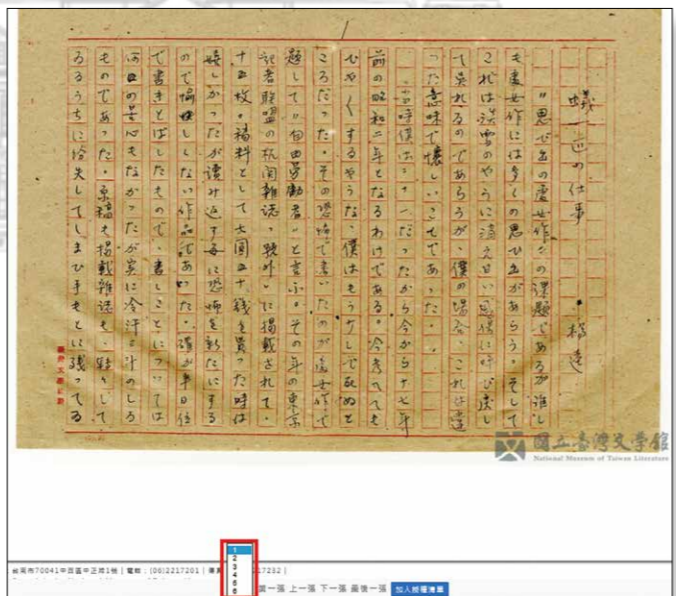 蟻一匹の仕事
楊逵
〃思ひ出の處女作〃の課題であるが誰し
も處女作には多くの思ひ出があらう。そして
これは淡雪のやうに淡く甘い思慕に呼び戻し
て呉れるのであらうが、僕の場合、これは違
った意味で懐しいことであった。
當時僕は二十一だったから今から十七年
前の昭和二年となるわけである。今考へても
ひやひやするやうな、僕はもう少しで死ぬと
ころだった。その恐怖を書いたのが處女作で
題して〃自由勞働者〃と言ふ。その年の東京
記者聯盟の机関雜誌〃號外〃に掲載されて、
十五枚の稿料として大圓五十銭を貰った時は
嬉しかったが讀み返す毎に恐怖を新たにする
ので愉快しくない作品であった。僅か半日位
で書きとばしたもので、書くことについては
何の苦心もなかったが實に冷汗三斗のしろ
ものであった。原稿も掲載雜誌も、轉々して
ゐるうちに紛失してしまひ手もとに残ってゐ
國立臺灣文學館
National Museum of Taiwan Literature
台南市70041中西區中正路1號 | 電話：(06)2217201 | 傳真 17232 |
1
2
3
4
5
6
第一張 上一張 下一張 最後一張 加入授權清單